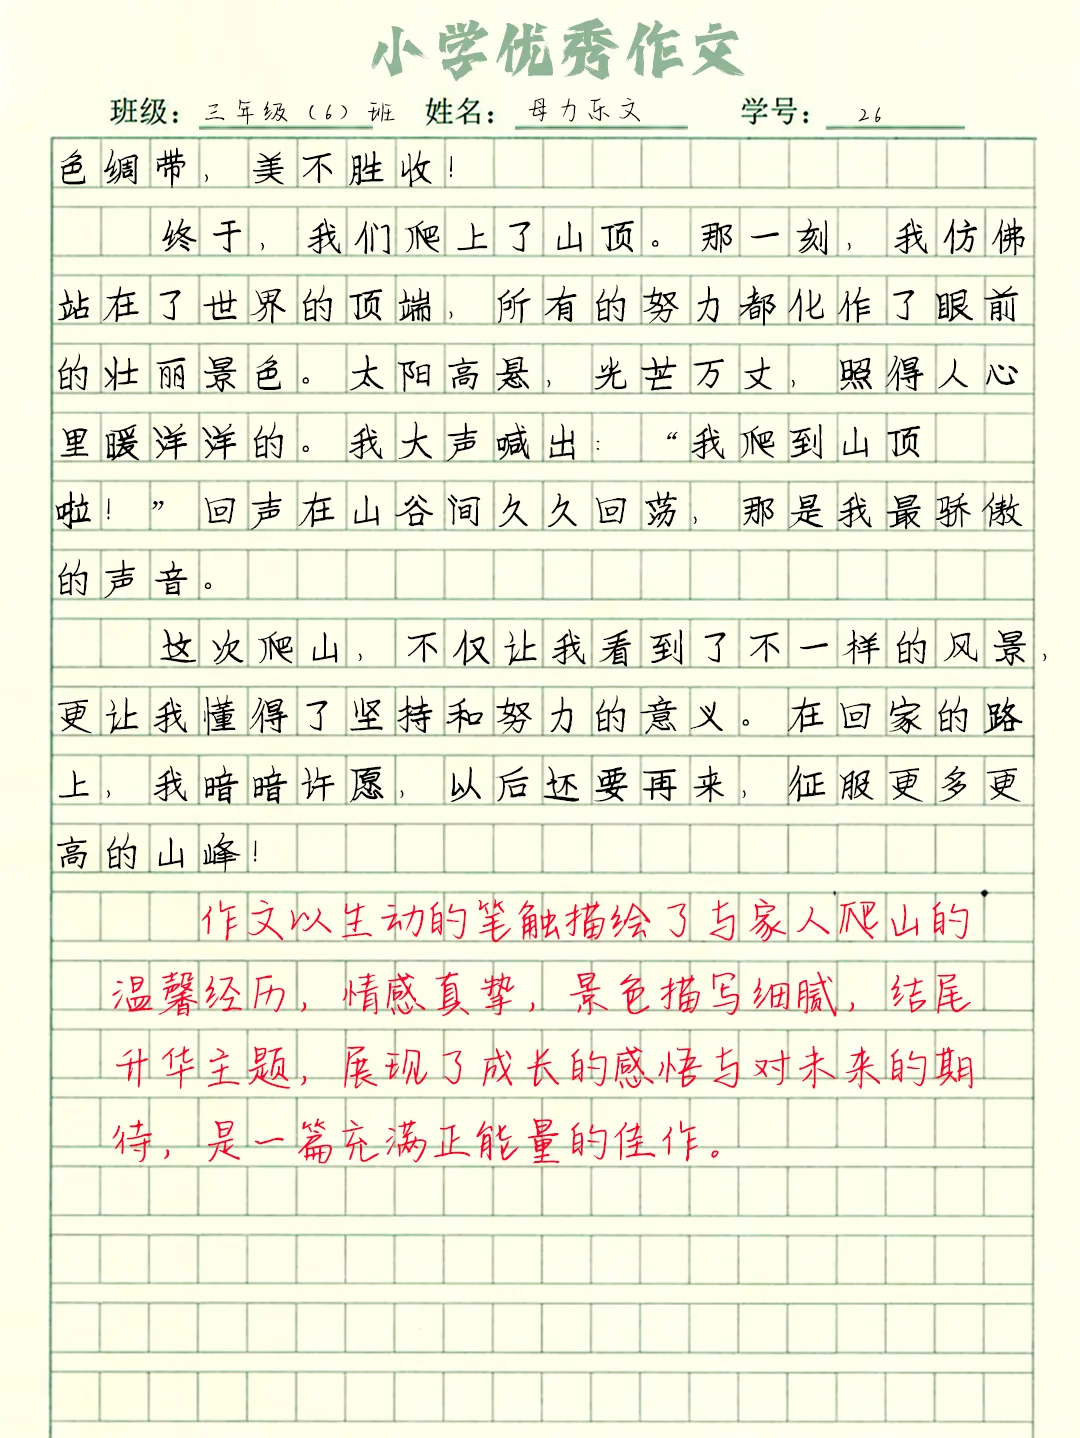 小学优秀作文
班级：三年级（6）班 姓名：母力乐文 学号：26
色绸带，美不胜收！
终于，我们爬上了山顶。那一刻，我仿佛
站在了世界的顶端，所有的努力都化作了眼前
的壮丽景色。太阳高悬，光芒万丈，照得人心
里暖洋洋的。我大声喊出：“我爬到山顶
啦！”回声在山谷间久久回荡，那是我最骄傲
的声音。
这次爬山，不仅让我看到了不一样的风景，
更让我懂得了坚持和努力的意义。在回家的路
上，我暗暗许愿，以后还要再来，征服更多更
高的山峰！
作文以生动的笔触描绘了与家人爬山的
温馨经历，情感真挚，景色描写细腻，结尾
升华主题，展现了成长的感悟与对未来的期
待，是一篇充满正能量的佳作。